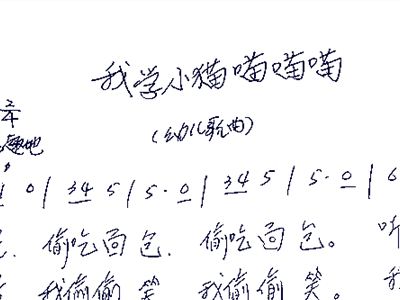 我学小猫喵喵喵
(幼儿歌曲)
2/4
0 | 34 5 | 5· 0 | 34 5 | 5· 0 | 6
偷吃面包. 偷吃面包。 听
我偷偷笑. 我偷偷笑。 我